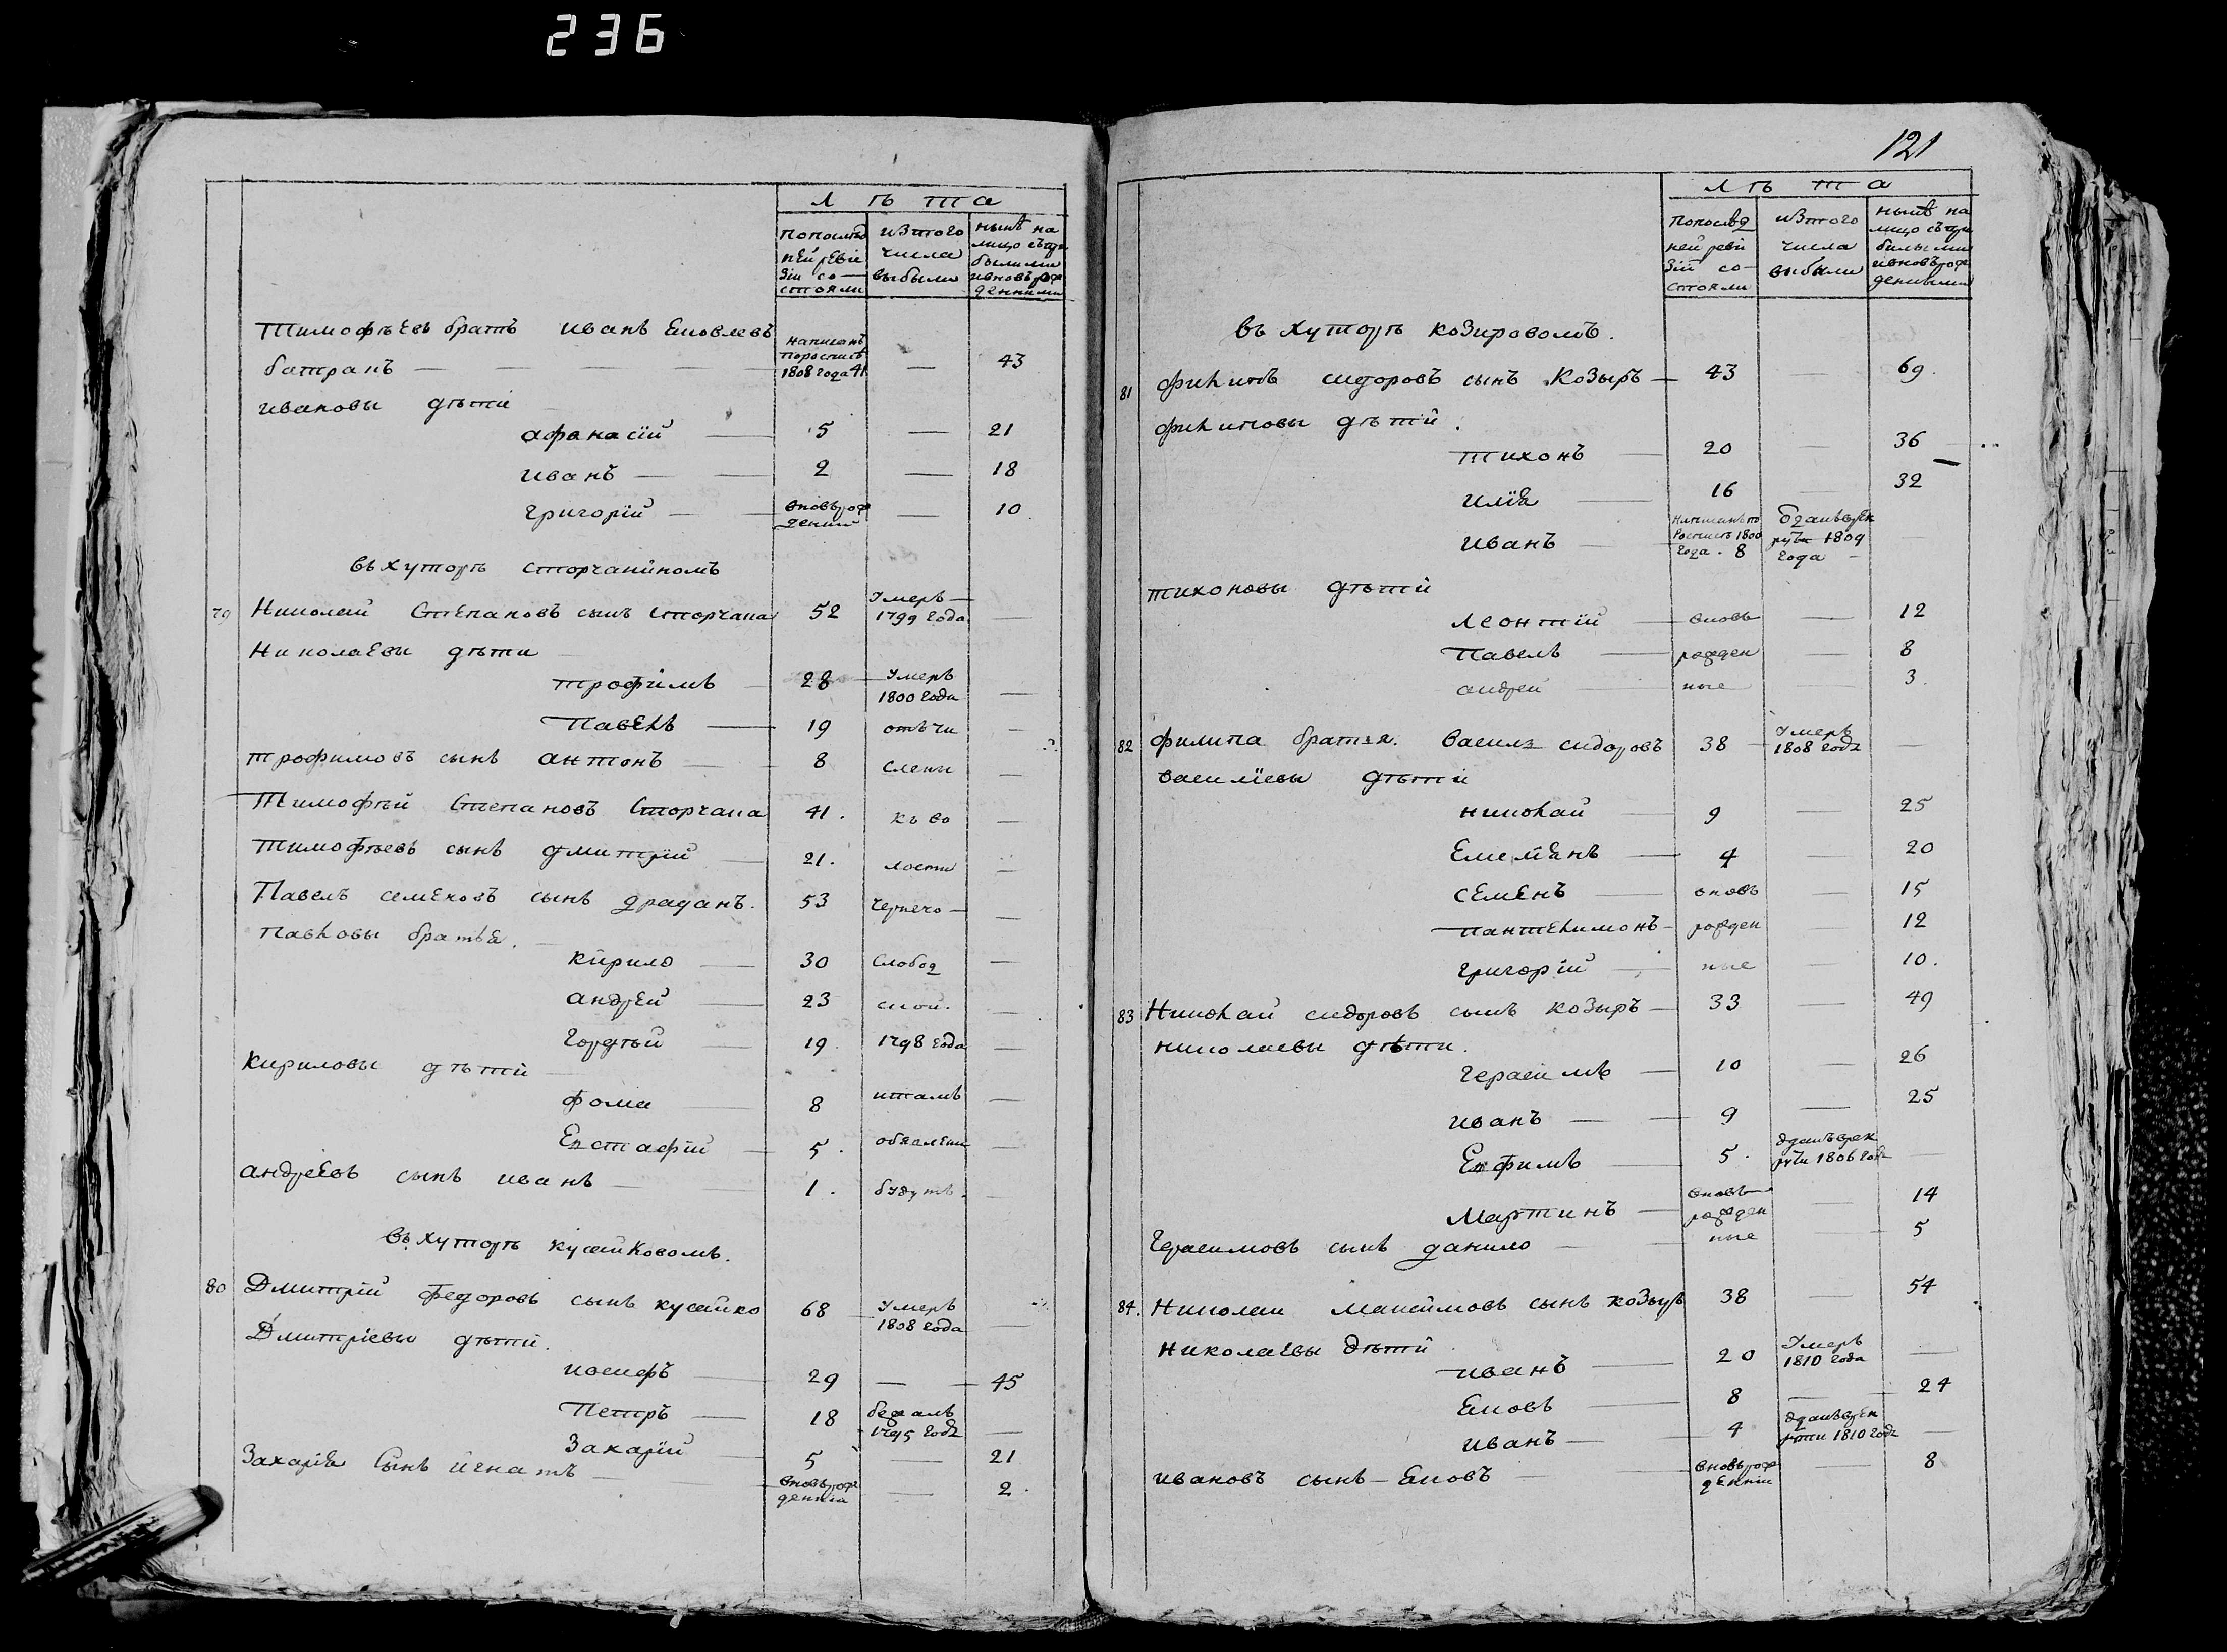 236
Л ѣ т а
попослѣд ней ревизіи состояли
изтого числа выбыли
нынѣ на лицо съ прибылыми и вновь рожденными
Тимофѣевъ братъ иванъ Ековлевъ
батранъ — написанъ поросписѣ 1808 года 41 — 43
ивановы дѣти
афанасій — 5 — 21
иванъ — 2 — 18
григорій — вновь рожденный — 10
въ хуторѣ сторчаниномъ
79 Николай Степановъ сынъ Сторчана 52 Умеръ 1799 года —
Николаевы дѣти
трофимъ 28 Умеръ 1800 года —
Павелъ — 19 отъчи —
трофимовъ сынъ антонъ — 8 слены —
Тимофѣй Степановъ Сторчана 41. къ во —
тимофѣевъ сынъ дмитрій 21. лости —
Павелъ семеновъ сынъ драганъ. 53 чернечо —
павловы братья.
кирило — 30 Слобод —
андрей — 23 ской. —
Гордѣй — 19. 1798 года —
кириловы дѣтй
фома — 8 итамъ —
Евстафій — 5. обявлены —
андреевъ сынъ иванъ — 1. будутъ. —
въ хуторѣ кусайковомъ.
80 Дмитрій федоровъ сынъ кусайко 68 Умеръ 1808 года —
Дмитріевы дѣтй.
иосифъ — 29 — 45
Петръ — 18 бежалъ 1795 года —
Захарій — 5 — 21
Захарія Сынъ игнатъ — вновь рожденній — 2.
121
Л ѣ т а
попослѣд ней ревизій состояли
изтого числа выбыли
нынѣ на лицо съ прибылыми и вновь рожденными
въ хуторѣ козировомъ.
81 филипъ сидоровъ сынъ Козыръ — 43 — 69.
филиповы дѣтй.
тихонъ — 20 — 36
илія — 16 — 32
иванъ — Написанъ по Росписѣ 1800 года. 8 Одданъ врекруты 1809 года —
тихоновы дѣтй
леонтій — вновь — 12
Павелъ — рожден — 8
андрей — ные — 3.
82 филипа братья. василь сидоровъ 38 Умеръ 1808 года —
василіевы дѣти
николай 9 — 25
Емеліянъ — 4 — 20
семенъ — вновь — 15
пантелимонъ — рожден — 12
григорій — ные — 10.
83 Николай сидоровъ сынъ козыръ — 33 — 49
николаевы дѣти.
герасимъ — 10 — 26
иванъ — 9 — 25
Ефимъ — 5. одданъ врекруты 1806 года —
мартинъ — вновь рожден — 14
Герасимовъ сынъ данило — ные — 5
84. Николай максимовъ сынъ козыръ 38 — 54
николаевы дѣтй
иванъ — 20 Умеръ 1810 года —
Ековъ 8 — 24
иванъ — 4 одданъ врекруты 1810 года —
ивановъ сынъ — Ековъ — вновь рожденній — 8